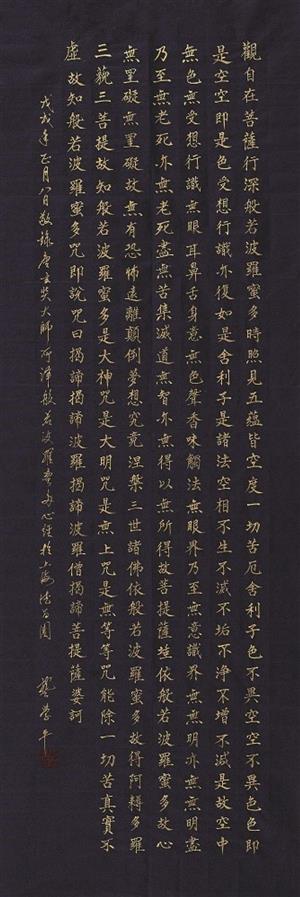 觀自在菩薩行深般若波羅蜜多時照見五蘊皆空度一切苦厄舍利子色不異空空不異色色即
是空空即是色受想行識亦復如是舍利子是諸法空相不生不滅不垢不淨不增不減是故空中
無色無受想行識無眼耳鼻舌身意無色聲香味觸法無眼界乃至無意識界無無明亦無無明盡
乃至無老死亦無老死盡無苦集滅道無智亦無得以無所得故菩提薩埵依般若波羅蜜多故心
無罣礙無罣礙故無有恐怖遠離顛倒夢想究竟涅槃三世諸佛依般若波羅蜜多故得阿耨多羅
三藐三菩提故知般若波羅蜜多是大神咒是大明咒是無上咒是無等等咒能除一切苦真實不
虛故知般若波羅蜜多咒即說咒曰揭諦揭諦波羅揭諦波羅僧揭諦菩提薩婆訶
戊戌年正月八日敬錄唐玄奘大師所譯般若波羅蜜多心經於上海園